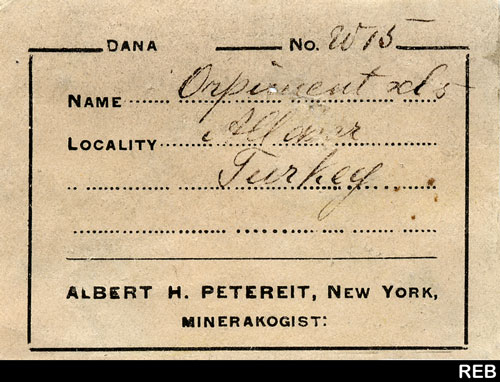 DANA No. W15
NAME Orpiment xls
LOCALITY Allchar
Turkey
ALBERT H. PETEREIT, NEW YORK,
MINERAKOGIST:
REB